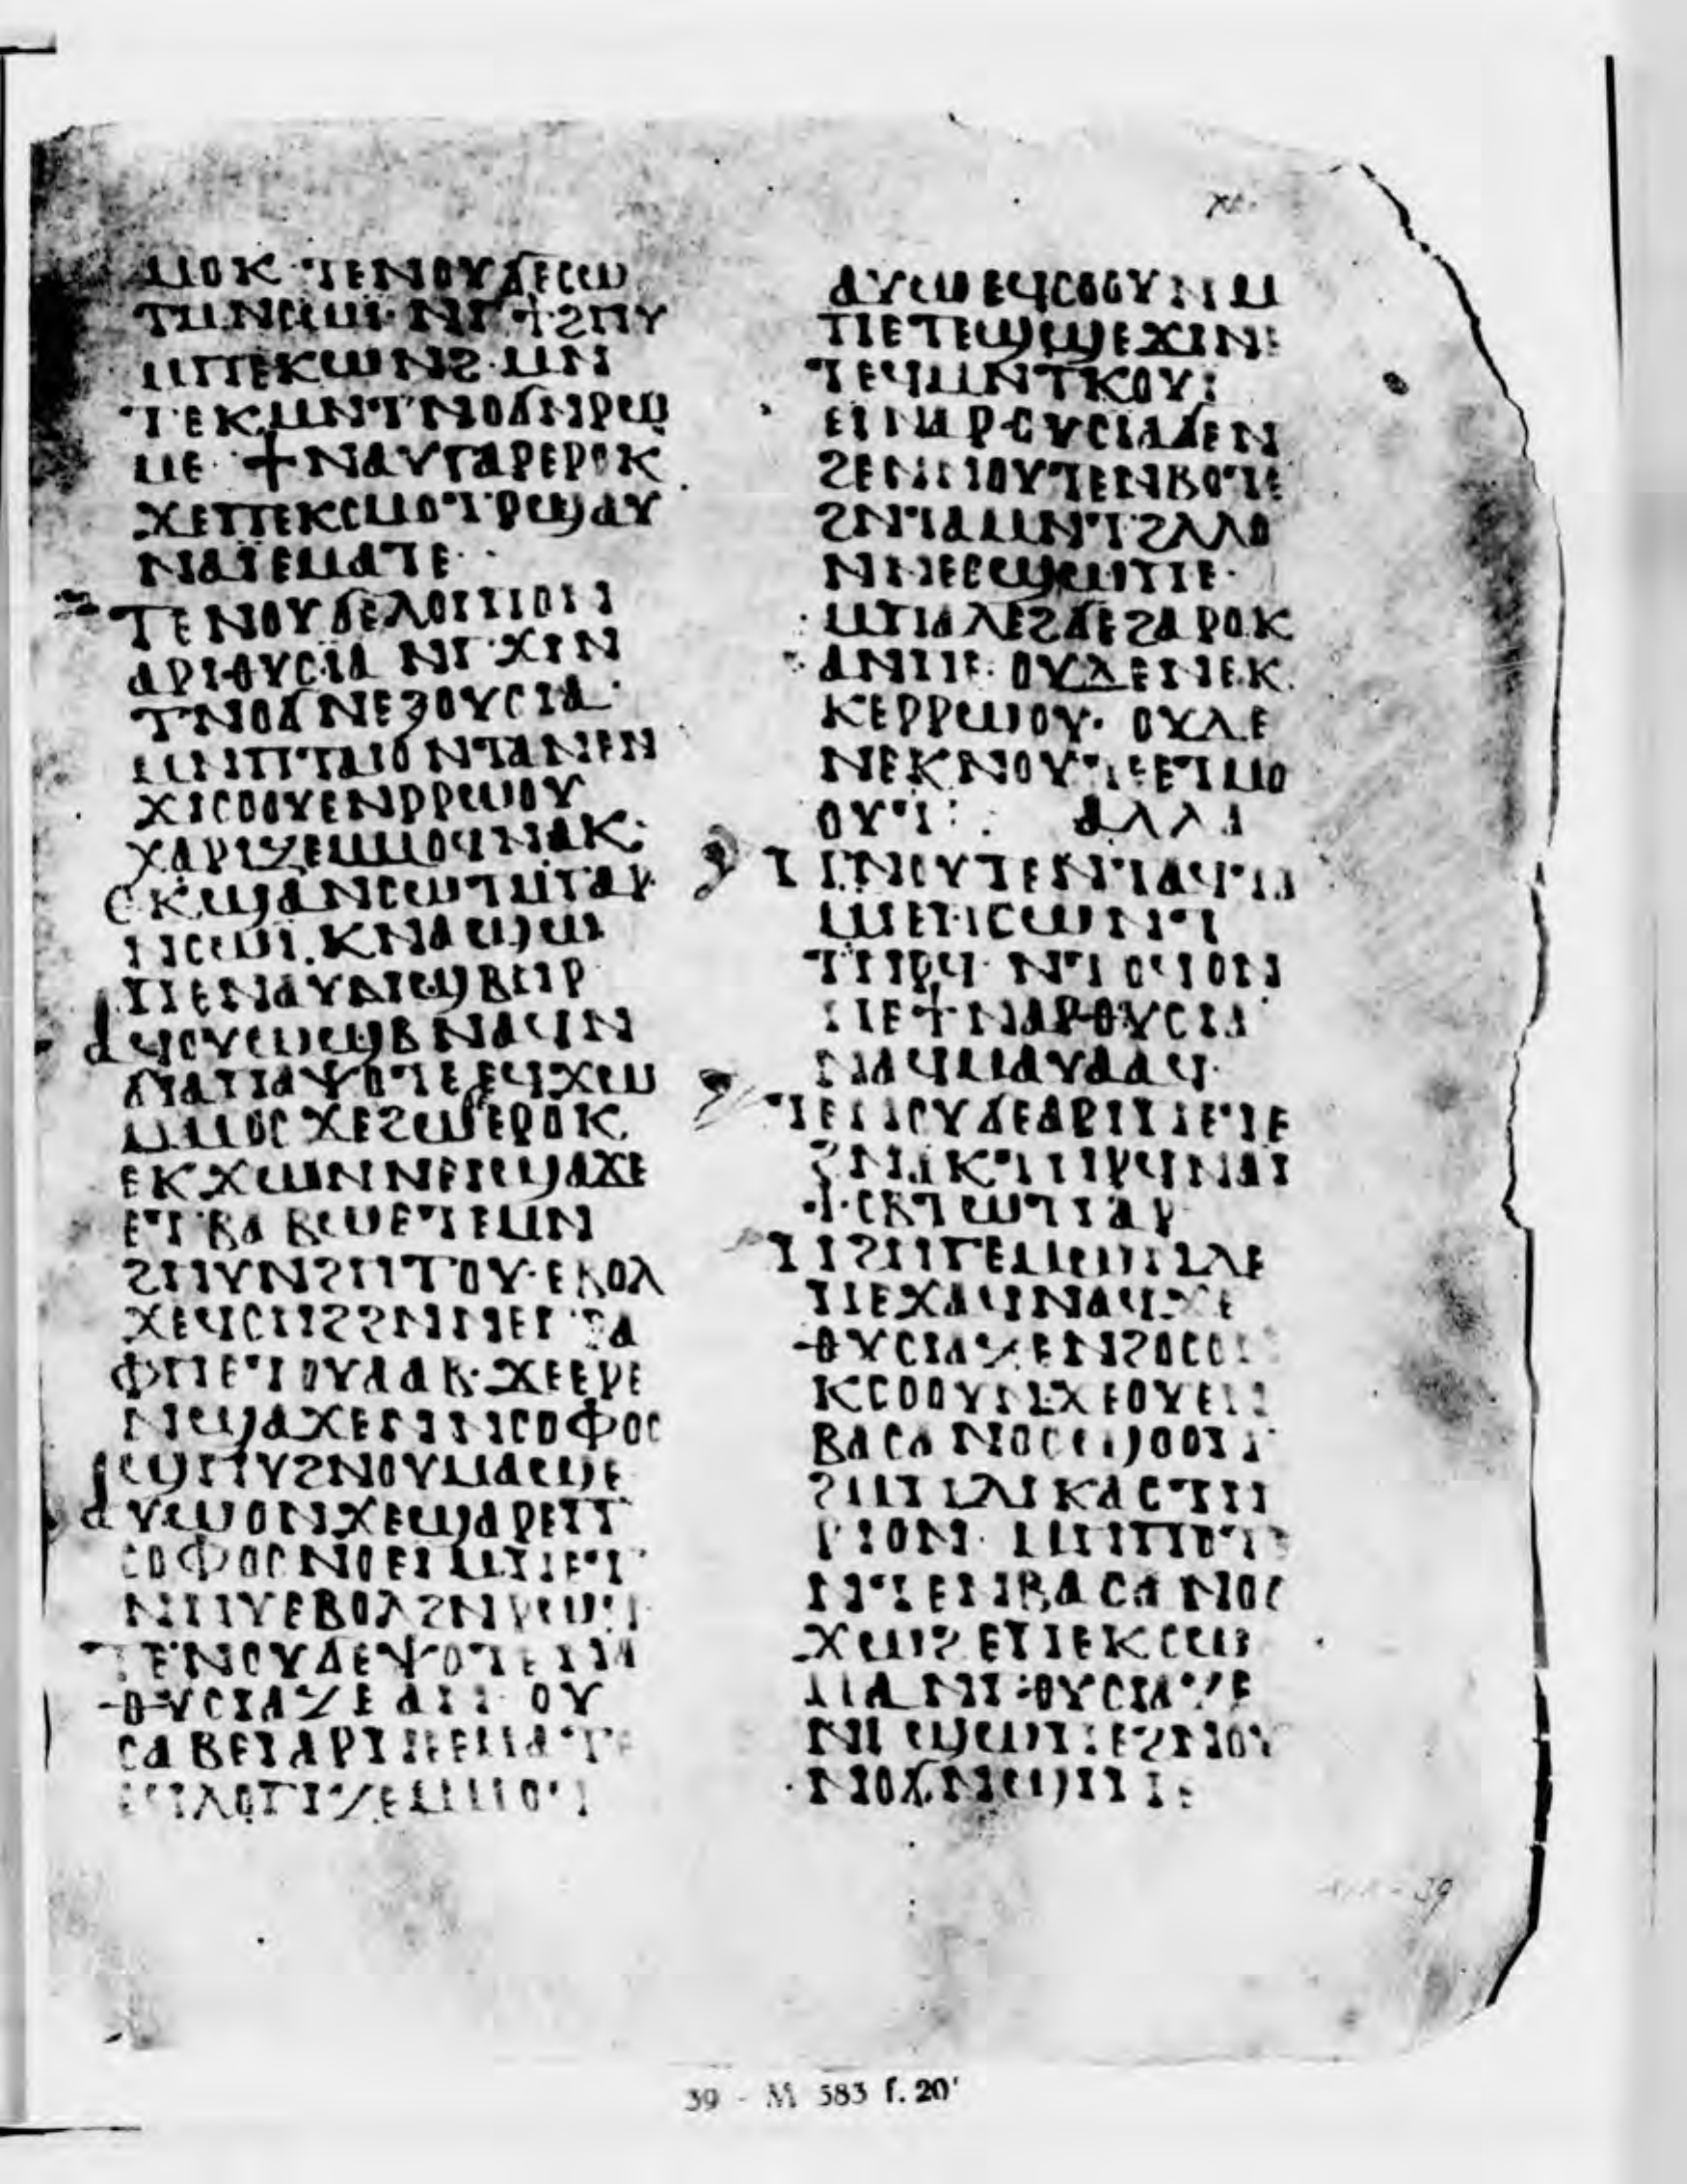 ⲙⲟⲕ· ⲧⲉⲛⲟⲩϭⲉⲥⲱ
ⲧⲙⲛⲥⲱⲓ· ⲛⲅϯϩⲧⲏⲩ
ⲙⲡⲉⲕⲱⲛϩ· ⲙⲛ
ⲧⲉⲕⲙⲛⲧⲛⲟϭⲛⲣⲱ
ⲙⲉ· ϯⲛⲁⲩⲅⲁⲣⲉⲣⲟⲕ
ϫⲉⲡⲉⲕⲥⲙⲟⲧⲣϣⲁⲩ
ⲛⲁⲓ̈ⲉⲙⲁⲧⲉ·
ⲧⲉⲛⲟⲩϭⲉⲗⲟⲓⲡⲟⲛ
ⲁⲣⲓⲑⲩⲥⲓⲁ ⲛⲅϫⲓⲛ
ⲧⲛⲟϭⲛⲉⲝⲟⲩⲥⲓⲁ·
ⲙⲛⲡⲧⲁⲓⲟⲛⲧⲁⲛⲉⲛ
ϫⲓⲥⲟⲟⲩⲉⲛⲣⲣⲱⲟⲩ
ⲭⲁⲣⲓⲍⲉⲙⲙⲟϥⲛⲁⲕ·
ⲉⲕϣⲁⲛⲥⲱⲧⲙⲅⲁⲣ
ⲛⲥⲱⲓ· ⲕⲛⲁϣⲱ
ⲡⲉⲛⲁⲩⲛϣⲃⲏⲣ
ⲁϥⲟⲩⲱϣⲃⲛⲁϥⲛ
ϭⲓⲁⲡⲁⲯⲟⲧⲉⲉϥϫⲱ
ⲙⲙⲟⲥϫⲉϩⲱⲉⲣⲟⲕ
ⲉⲕϫⲱⲛⲛⲉⲓϣⲁϫⲉ
ⲉⲧⲃⲁⲃⲱⲉⲧⲉⲙⲛ
ϩⲏⲩⲛϩⲏⲧⲟⲩ· ⲉⲃⲟⲗ
ϫⲉϥⲥⲏϩϩⲛⲛⲉⲅⲣⲁ
ⲫⲏⲉⲧⲟⲩⲁⲁⲃ· ϫⲉⲉⲣⲉ
ⲛϣⲁϫⲉⲛⲛⲥⲟⲫⲟⲥ
ⲥϣⲏⲩϩⲛⲟⲩⲙⲁϣⲉ
ⲁⲩⲱⲟⲛϫⲉϣⲁⲣⲉⲡ
ⲥⲟⲫⲟⲥⲛⲟⲉⲓⲙⲡⲉⲧ
ⲛⲏⲩⲉⲃⲟⲗϩⲛⲣⲱϥ
ⲧⲉⲛⲟⲩϭⲉⲯⲟⲧⲉⲛⲁ
ⲑⲩⲥⲓⲁⲍⲉⲁⲛ· ⲟⲩ
ⲥⲁⲃⲉⲅⲁⲣⲡⲉ
ⲗⲟⲅⲓⲍⲉⲙⲙⲟϥ
ⲁⲩⲱⲉϥⲥⲟⲟⲩⲛⲙ
ⲡⲉⲧⲉϣϣⲉϫⲓⲛ
ⲧⲉϥⲙⲛⲧⲕⲟⲩⲓ
ⲉⲓⲛⲁⲣⲑⲩⲥⲓⲁϭⲉⲛ
ϩⲉⲛⲛⲟⲩⲧⲉⲛⲃⲟⲧⲉ
ϩⲛⲧⲁⲙⲛⲧϩⲗⲗⲟ
ⲛⲛⲉⲥϣⲱⲡⲉ·
ⲙⲡⲁⲗⲉϩϭⲉϩⲁⲣⲟⲕ
ⲁⲛⲡⲉ· ⲟⲩⲇⲉⲛⲉⲕ
ⲕⲉⲣⲣⲱⲟⲩ· ⲟⲩⲇⲉ
ⲛⲉⲕⲛⲟⲩⲧⲉⲉⲧⲙⲟ
ⲟⲩⲧ: ⲁⲗⲗⲁ
ⲡⲛⲟⲩⲧⲉⲛⲧⲁϥⲧⲁ
ⲙⲉⲡⲥⲱⲛⲧ
ⲧⲏⲣϥ· ⲛⲧⲟϥⲟⲛ
ⲡⲉϯⲛⲁⲣⲑⲩⲥⲓⲁ
ⲛⲁϥⲙⲁⲩⲁⲁϥ·
ⲧⲉⲛⲟⲩϭⲉⲁⲣⲓⲡⲉⲧⲉ
ϩⲛⲁⲕⲧⲏⲣϥⲛⲁⲓ
ϯⲥⲃⲧⲱⲧⲅⲁⲣ
ⲡϩⲏⲅⲉⲙⲱⲛⲇⲉ
ⲡⲉϫⲁϥⲛⲁϥϫⲉ
ⲑⲩⲥⲓⲁⲍⲉⲛϩⲟⲥⲟⲛ
ⲕⲥⲟⲟⲩⲛϫⲉⲟⲩⲉⲓ
ⲃⲁⲥⲁⲛⲟⲥϣⲟⲟⲡ
ϩⲙⲡⲇⲓⲕⲁⲥⲧⲏ
ⲣⲓⲟⲛ· ⲙⲡⲡⲟⲧⲉ
ⲛⲧⲉⲛⲃⲁⲥⲁⲛⲟⲥ
ϫⲱϩⲉⲡⲉⲕⲥⲱ
ⲙⲁ ⲛⲅⲑⲩⲥⲓⲁⲍⲉ
ⲛⲅϣⲱⲡⲉϩⲛⲟⲩ
ⲛⲟϭⲛϣⲓⲡⲉ
39 - M 583 f. 20ʳ